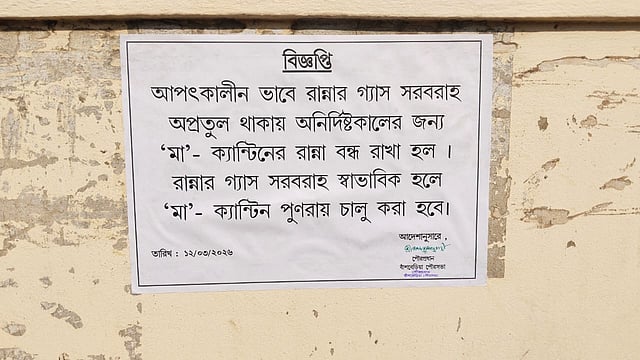 বিজ্ঞপ্তি
আপৎকালীন ভাবে রান্নার গ্যাস সরবরাহ
অপ্রতুল থাকায় অনির্দিষ্টকালের জন্য
‘মা’- ক্যান্টিনের রান্না বন্ধ রাখা হল ।
রান্নার গ্যাস সরবরাহ স্বাভাবিক হলে
‘মা’- ক্যান্টিন পুণরায় চালু করা হবে।
আদেশানুসারে ,
তারিখ : ১২/০৩/২০২৬
পৌরপ্রধান
বাঁশবেড়িয়া পৌরসভা